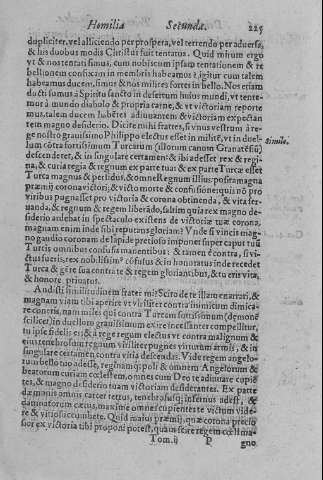 Homilia Secunda. 225
dupliciter, vel alliciendo per prospera, vel terrendo per adversa,
& his duobus modis Christus fuit tentatus. Quid mirum ergo
ut & nos tentati simus, cum nobiscum ipsam tentationem & re
bellionem confixam in membris habeamus? igitur cum talem
habeamus ducem, simus & nos milites fortes in bello. Nos etiam
ducti sumus à Spiritu sancto in desertum huius mundi, ut tente-
mur à mundo diabolo & propria carne, & ut victoriam reporte
mus, talem ducem habētes adiuvantem & victoriam expectan
tem magno desiderio. Dicite mihi fratres, si vnus vestrum à re-
ge nostro gravissimo Philippo electus esset in militē, ut in duel-
lum cōtra fortissimum Turcarum
simile.
descenderet, & in singulare certamen: & ibi adesset rex & regi-
na, & curia regia & regnum ex parte tua: & ex parte Turcæ esset
Turca magnus & perfidus, & omne Regnum illius: posita magna
præmij corona victori; & victo morte & confusione: quis nō pro
viribus pugnasset pro victoria & corona obtinenda, & vita ser-
vanda, & regnum & regem liberādo, saltim quia rex magno de-
siderio ardebat in spectaculo existens de victoria tuæ corona,
magnam enim inde sibi reputans gloriam? Vnde si vincis mag-
no gaudio coronam de lapide pretioso imponet super caput tuū
Turcis omnibus confusis manentibus: & tamen è contra, si vi-
ctus fueris, rex nobilissimus cōfusus & in honoratus inde recedet
Turca & gēte sua contrate & regem gloriantibus, & tu eris vita,
& honore privatus.
Audisti similitudinem frater mi? Scito de re illam enarrasti, &
magnam viam tibi aperire ut viriliter contra inimicum dimica-
re contrā, nam miles qui contra Turcam fortissimum (demonē
scilicet) in duellom gravissimum exire incessanter compellitur,
tu ipse fidelis es; & à rege regum electus ut contra malignum &
eius tenebrosum regnum viriliter pugnes virtutum armis, & in
singulare certamen contra vitia descendas. Vide regem angelo-
rum bello tuo adesse, reginamq; poli & omnem Angelorum &
beatorum curiam cœlestem, omnes cum Deo te adiuvare cupiē
tes, & magno desiderio tuam victoriam desiderantes. Ex parte
dæmonis amnis carcer tetrus, tenebrosusq; infernus adest, &
damnatorum cætus, maxime omnes cupientes te victum vide-
re & vitijs succumbere. Quid maius præmij, quæ corona precio
sior ex victoria tibi proponi potest, quàm scire regem cœli ma-
Tom. ij P gno